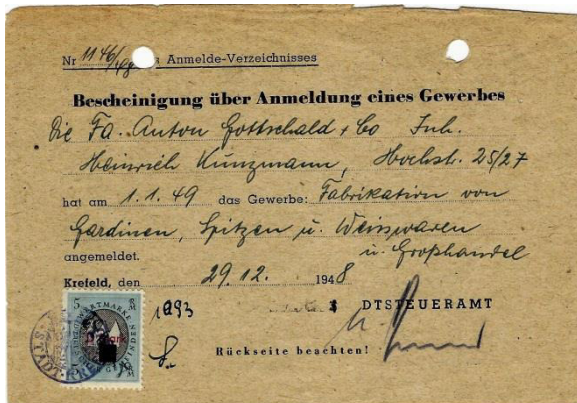 Nr 1146/49 Anmelde-Verzeichnisses
Bescheinigung über Anmeldung eines Gewerbes
Die Fa. Anton Gottschald + Co Inh.
Heinrich Kunzmann, Hochstr. 25/27
hat am 1.1.49 das Gewerbe: Fabrikation von
Gardinen, Spitzen u. Weisswaren
angemeldet. u. Großhandel
Krefeld, den 29.12. 1948
1293
DTSTEUERAMT
Rückseite beachten!
5 5
WERTMARKE